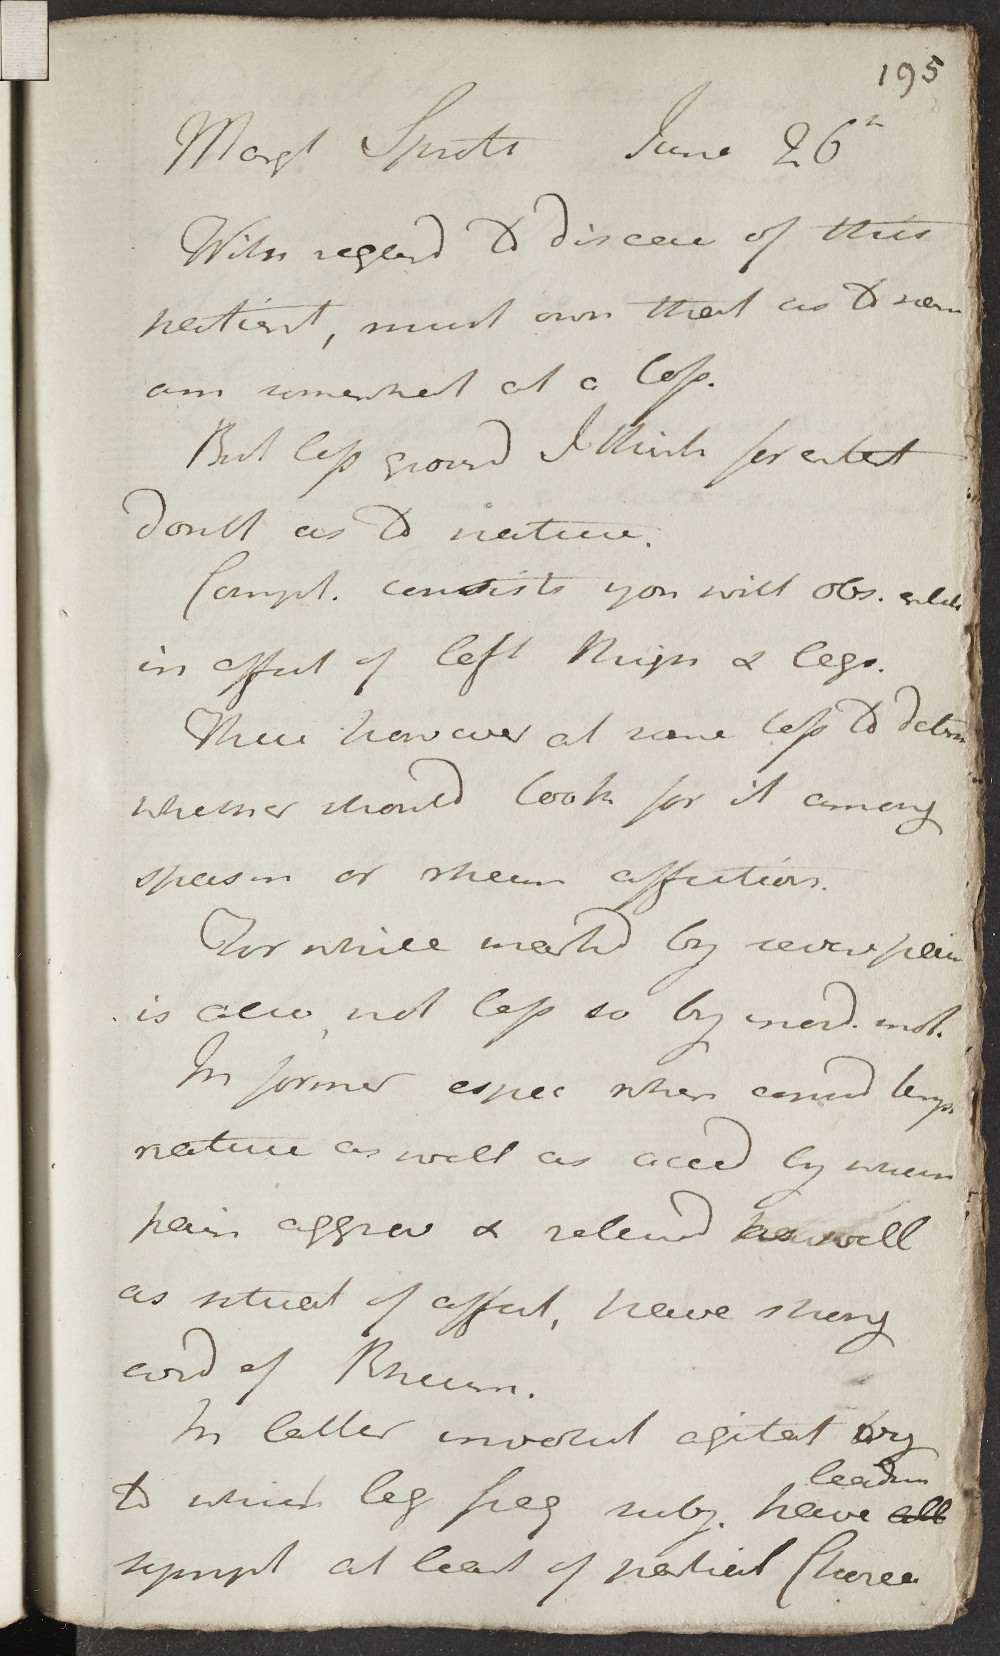 195
Margt Sprots June 26th
With regard to disease of this
patient, must own that as to nam
am somewhat at a loss.
But less ground I think for entert
doubt as to nature.
Compt. consists you will obs.
in affect of left thigh & legs.
There however at some loss to determ
whether should look for it among
spasm or rheum affection.
For while markd by severe pain
is also, not less so by inord. mot.
In former espec when consid
nature as well as accd by whem
pain aggrav & relievd as well
as situat of affect, have strong
evid of Rheum.
In latter involunt agitat by
to which leg freq subj. have leadin
sympt at least of partial Chorea